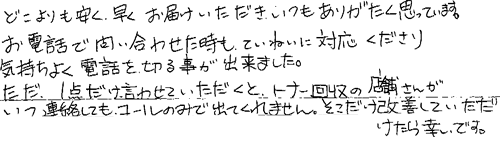 どこよりも安く、早く お届けいただき、いつもありがたく思っています。
お電話で問い合わせた時も、ていねいに対応くださり
気持ちよく電話を切る事が出来ました。
ただ、1点だけ言わせていただくと、トナー回収の 店舗さんが
いつ連絡しても、コールのみで出てくれません。そこだけ改善していただ
けたら幸いです。